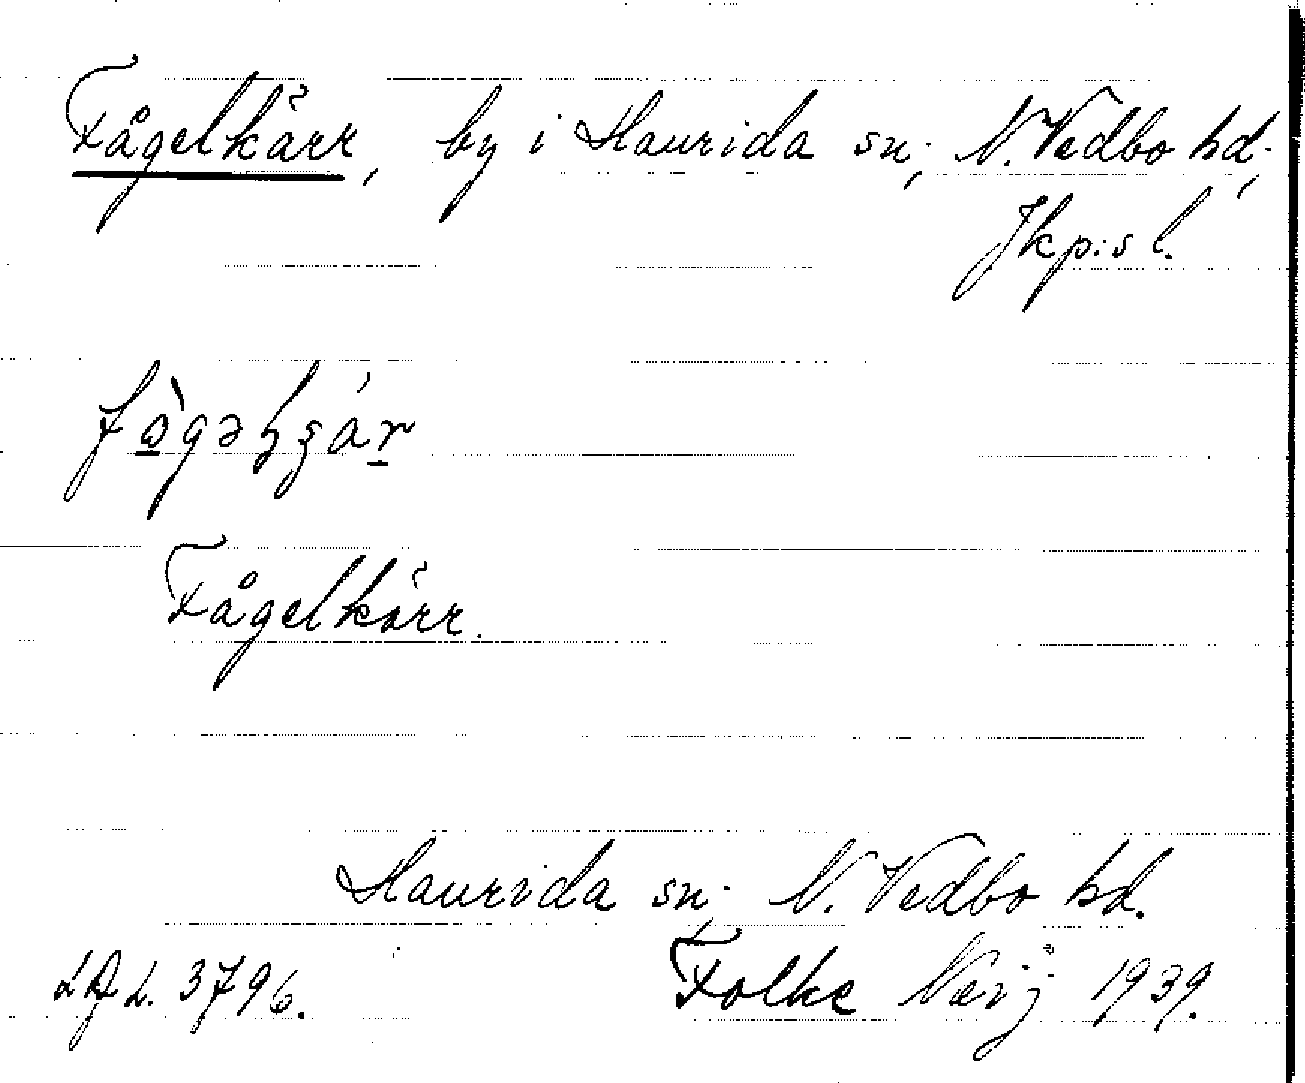 Fågelkärr, by i Haurida sn; N. Vedbo hd.,
Jkp:s l.
Fågelkärr.
Haurida sn; N. Vedbo hd.
3796. Folke 1939.